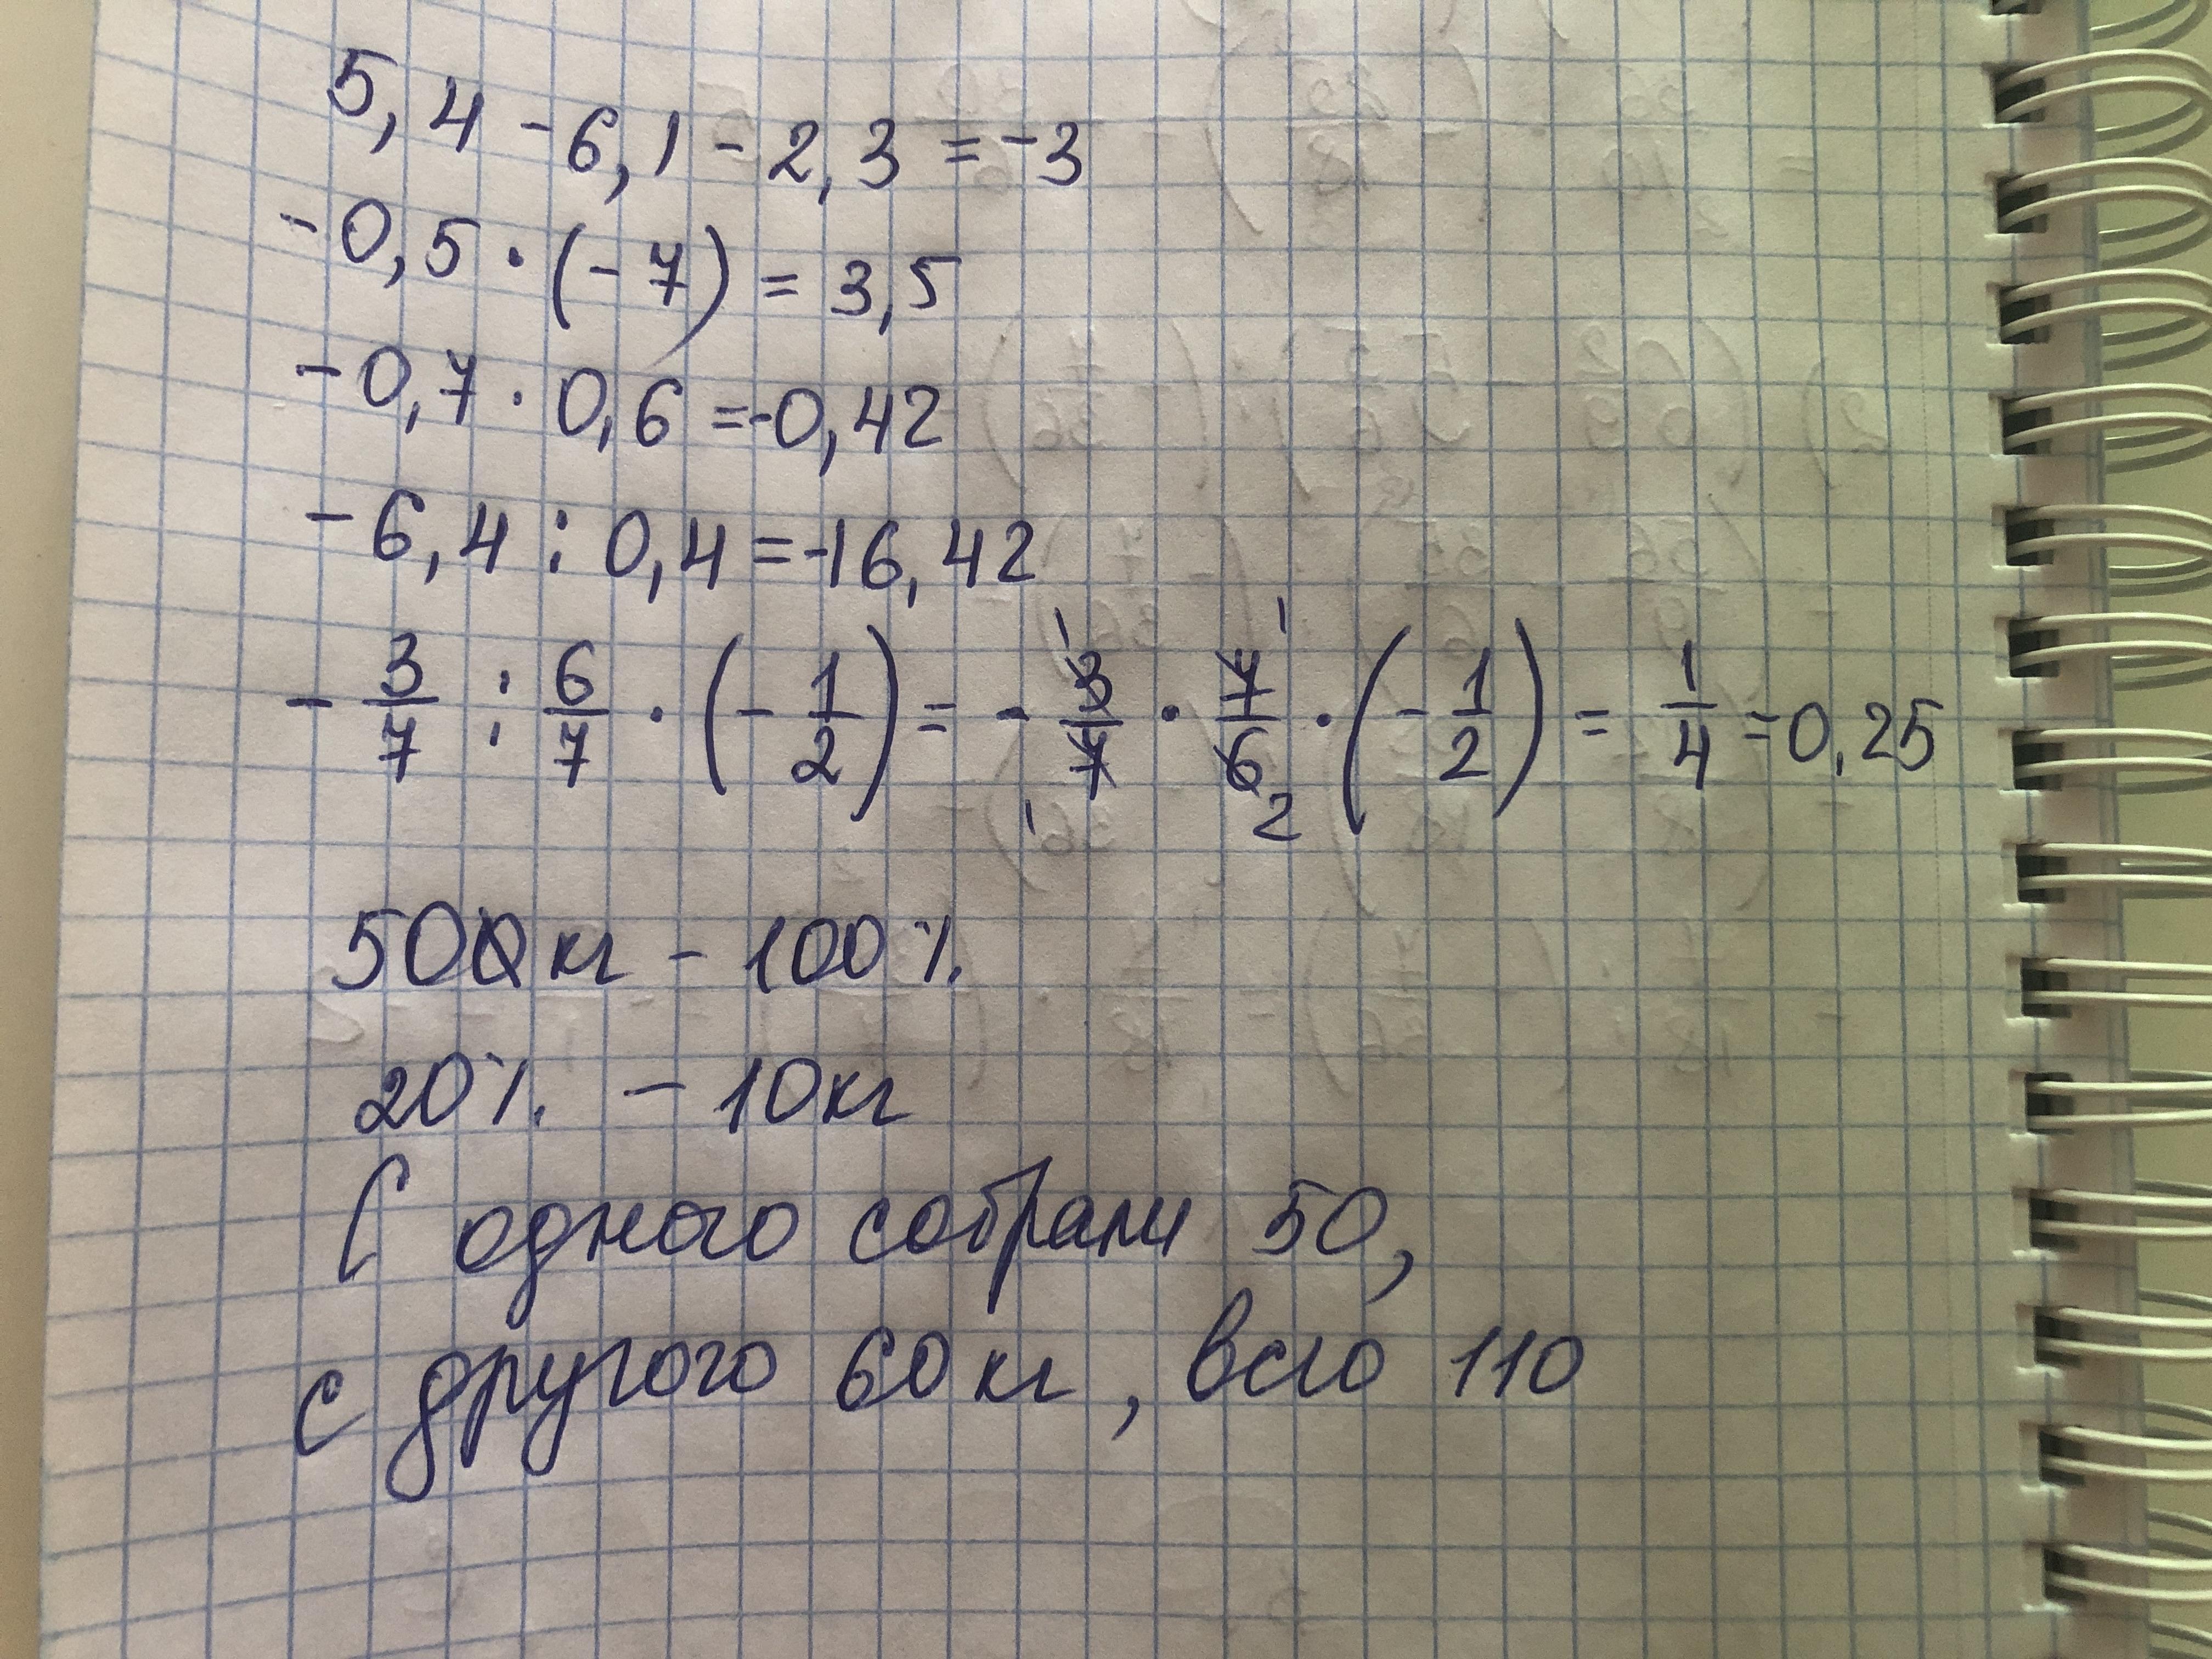 5,4 - 6,1 - 2,3 = -3
-0,5 · (-7) = 3,5
-0,7 · 0,6 = -0,42
-6,4 : 0,4 = -16,42
- 3/7 : 6/7 · (- 1/2) = - 3/7 · 7/6 · (- 1/2) = 1/4 = 0,25
50 кг - 100 %
20 % - 10 кг
С одного собрали 50,
с другого 60 кг, всго 110